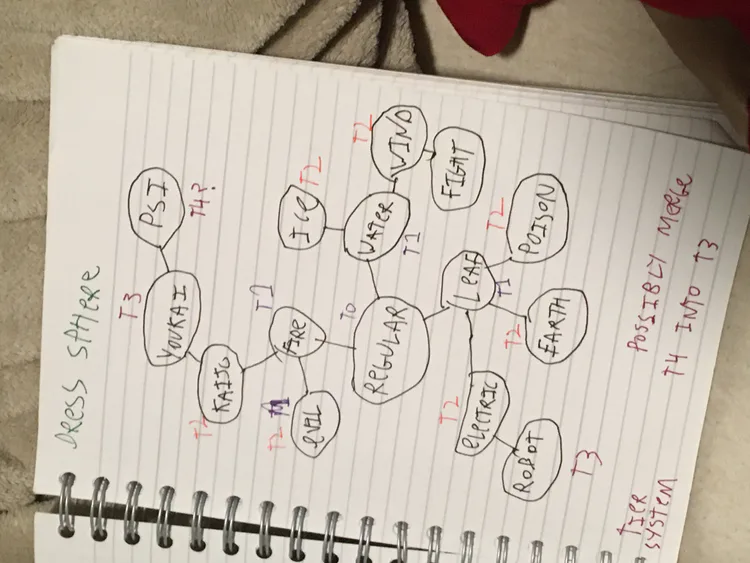 DRESS SPHERE
T3
YOUKAI
PSI
T4?
T2
KAIJU
T1
FIRE
T2
EVIL
ICE
T2
T2
WIND
WATER
T1
FIGHT
T0
REGULAR
LEAF
T1
T2
POISON
T2
EARTH
T2
ELECTRIC
ROBOT
T3
TIER
SYSTEM
POSSIBLY MERGE
T4 INTO T3